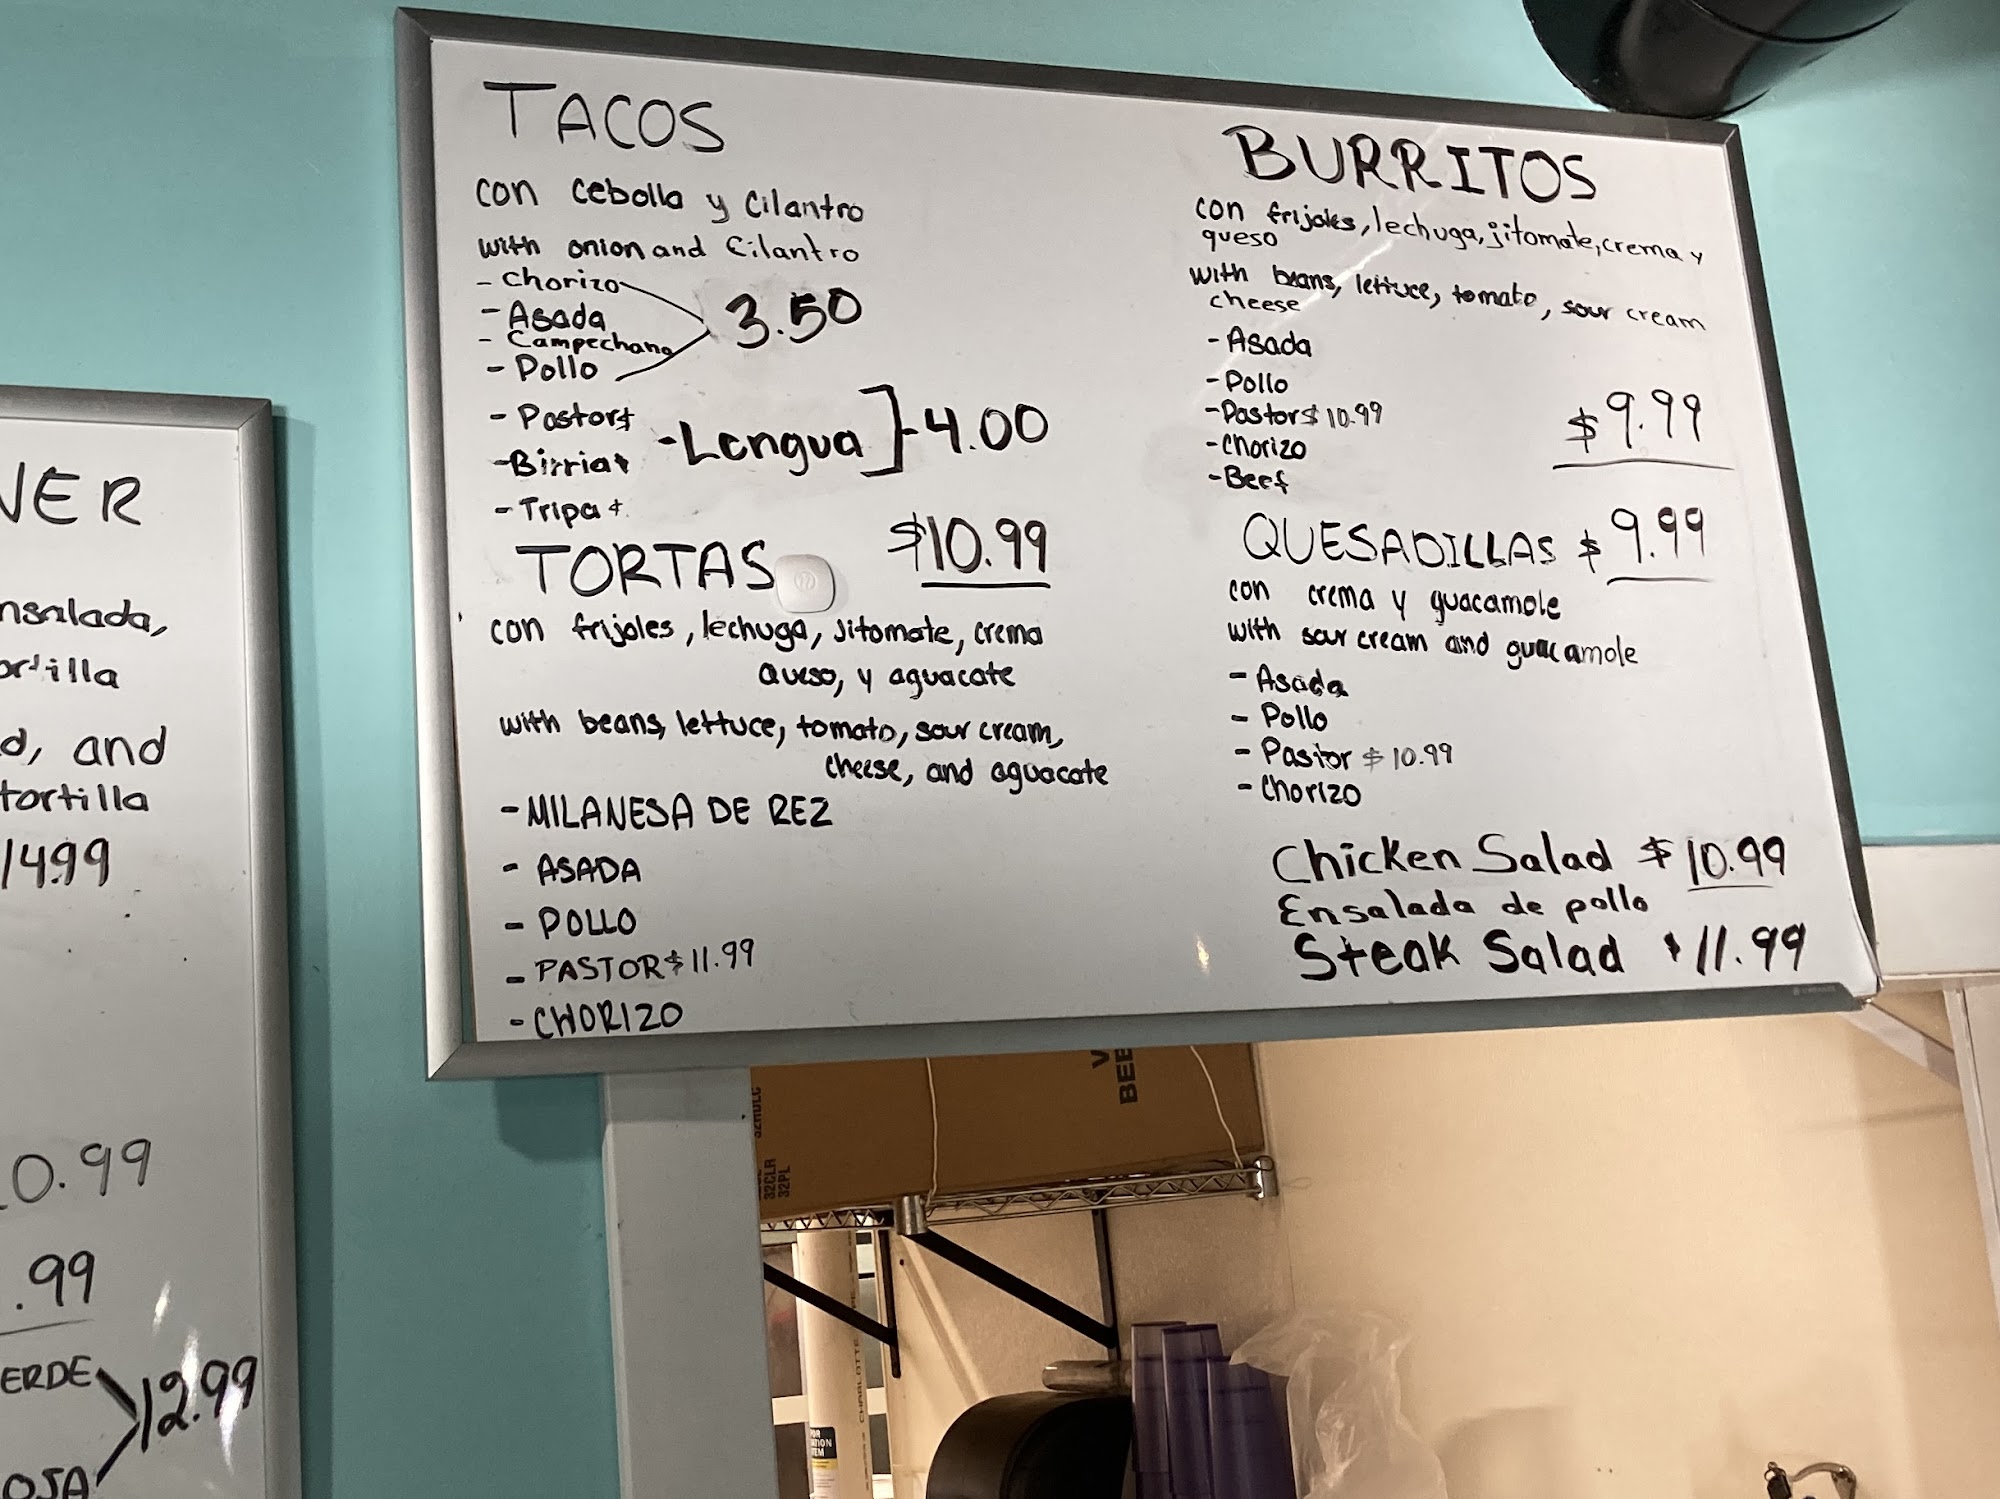 TACOS
con cebolla y cilantro
with onion and cilantro
- Chorizo
- Asada
- Campechano
- Pollo
3.50
- Pastor
- Birria
- Tripa
- Lengua
4.00
TORTAS $10.99
con frijoles, lechuga, jitomate, crema
queso, y aguacate
with beans, lettuce, tomato, sour cream,
cheese, and aguacate
- MILANESA DE REZ
- ASADA
- POLLO
- PASTOR $11.99
- CHORIZO
BURRITOS
con frijoles, lechuga, jitomate, crema y
queso
with beans, lettuce, tomato, sour cream
cheese
- Asada
- Pollo
- Pastor $10.99
- Chorizo
- Beef
$9.99
QUESADILLAS $9.99
con crema y guacamole
with sour cream and guacamole
- Asada
- Pollo
- Pastor $10.99
- Chorizo
Chicken Salad $10.99
Ensalada de pollo
Steak Salad $11.99
and
tortilla
1499
.99
12.99
32CLR
32PL